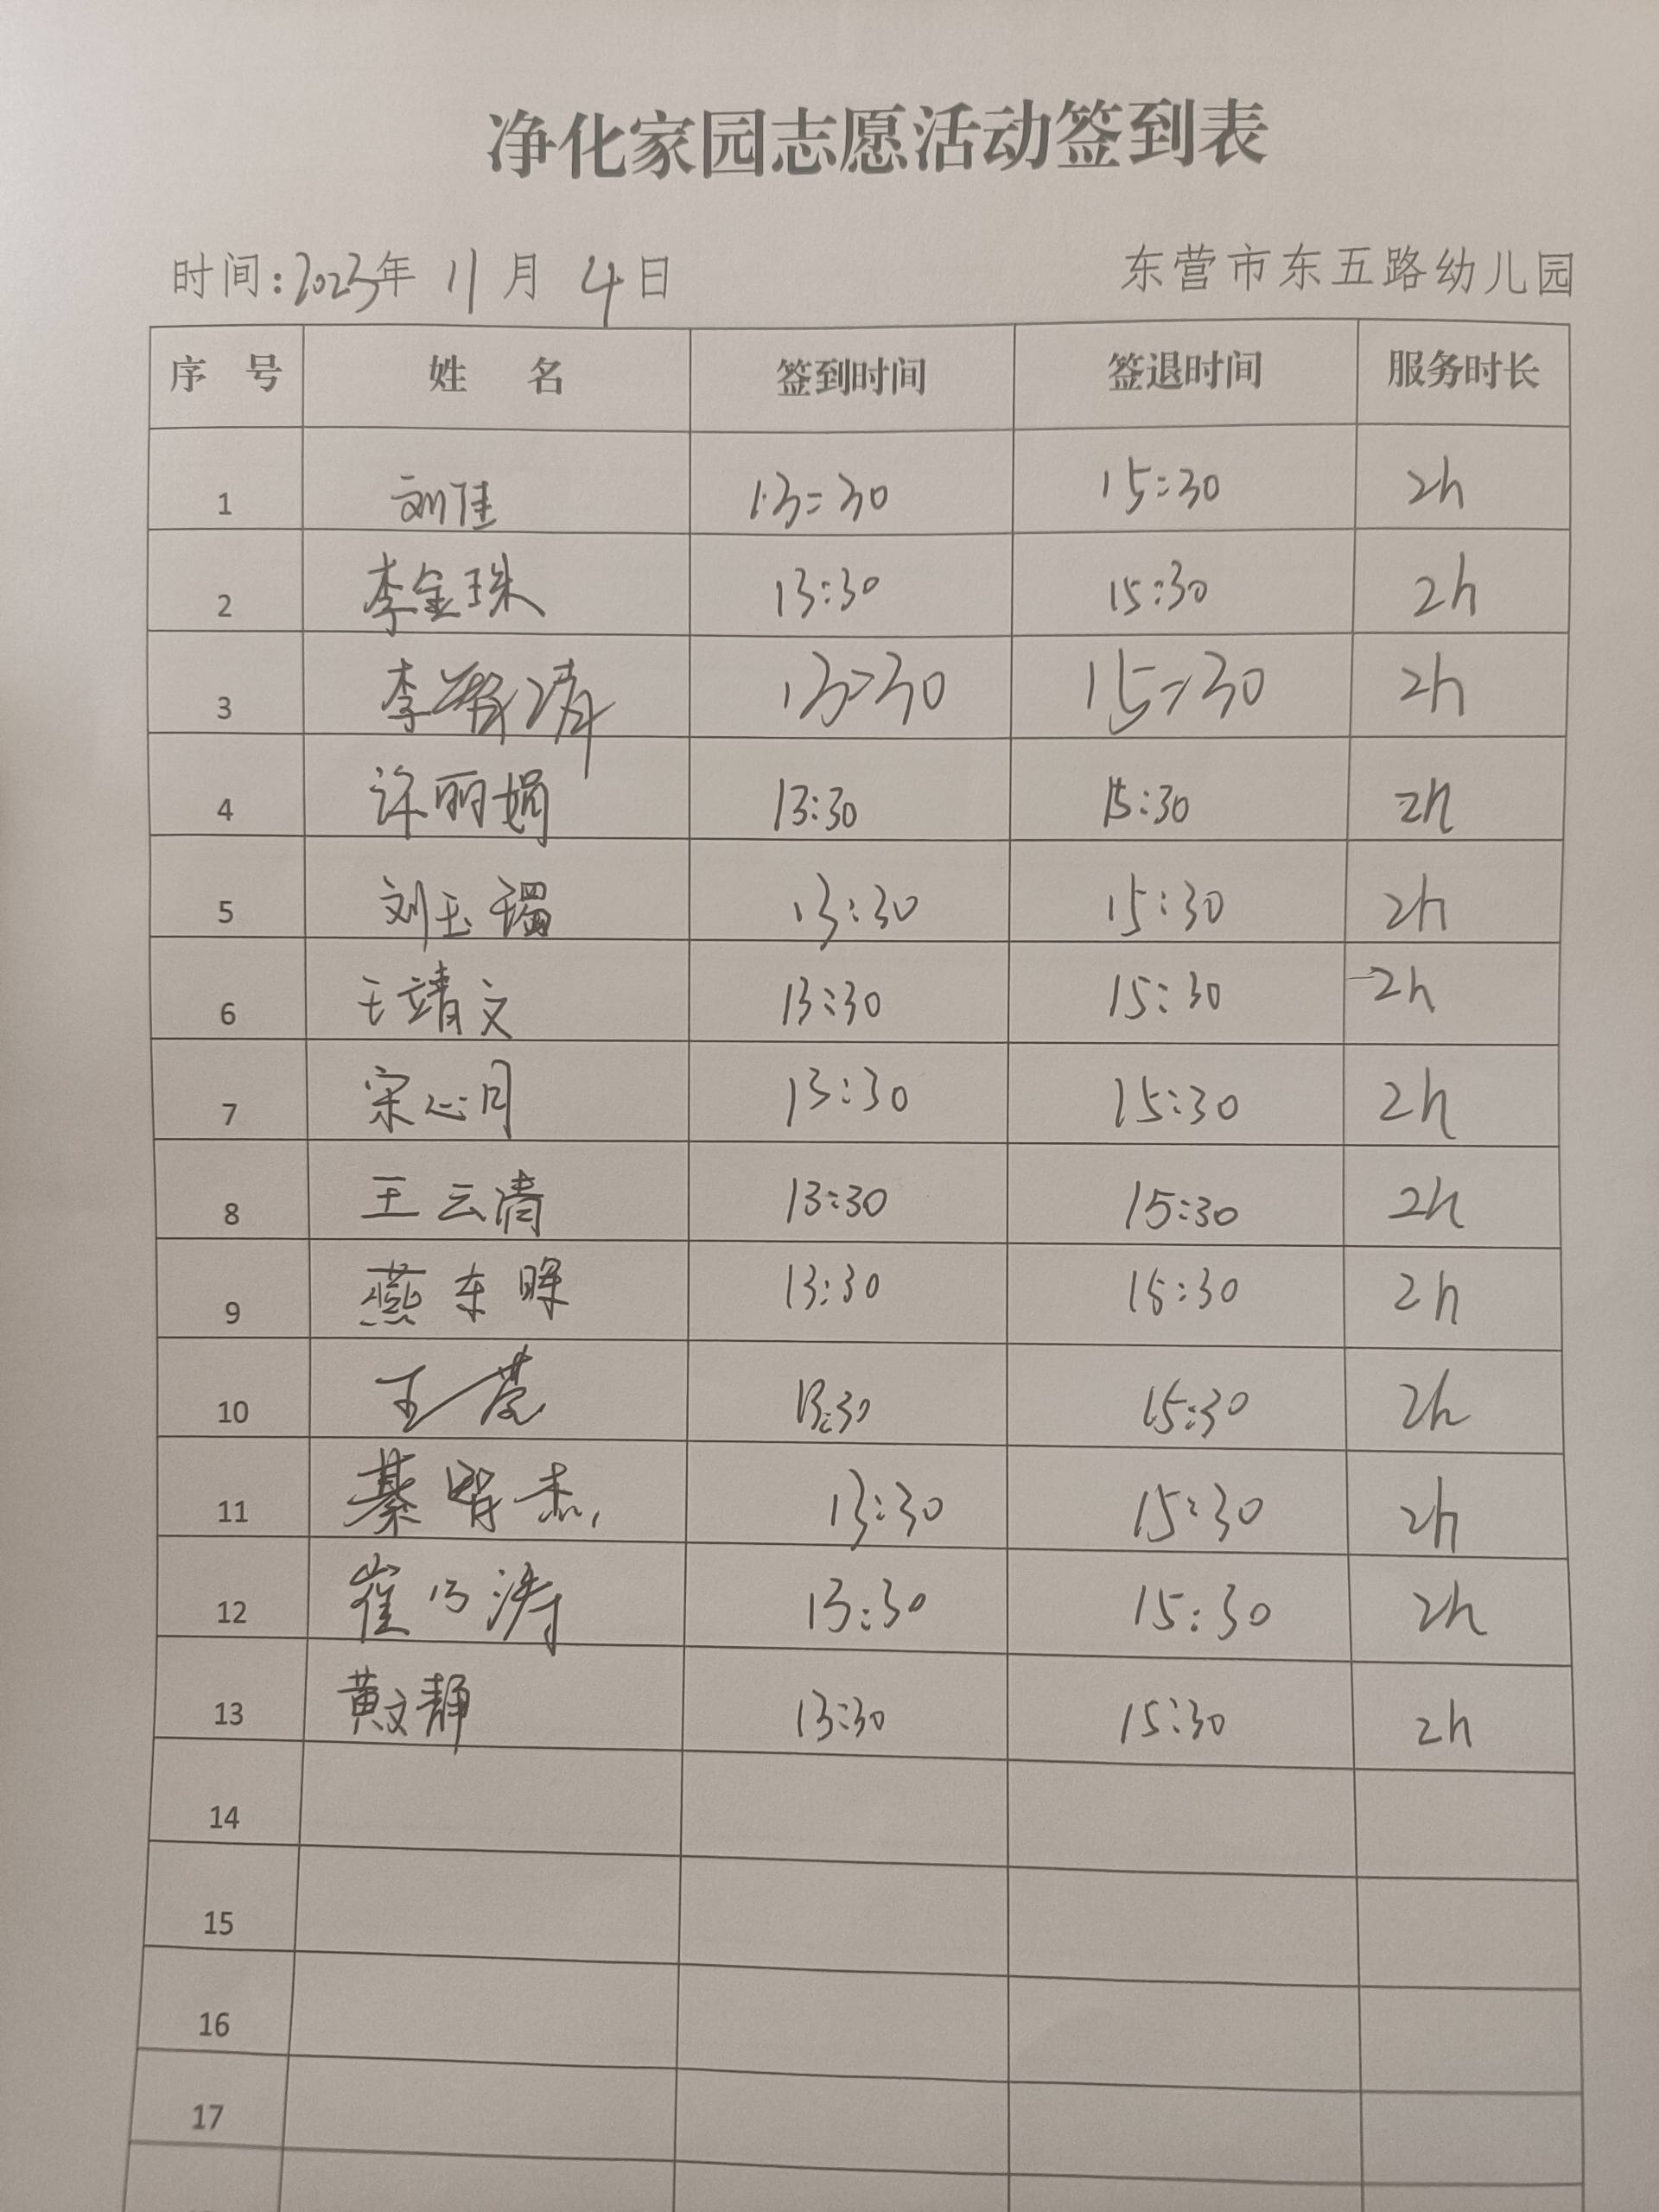 净化家园志愿活动签到表
时间:2023年 11月 4日 东营市东五路幼儿园
序 号 姓 名 签到时间 签退时间 服务时长
1 刘佳 13:30 15:30 2h
2 李金珠 13:30 15:30 2h
3 李 清 13:30 15:30 2h
4 许丽娟 13:30 15:30 2h
5 刘玉 13:30 15:30 2h
6 王靖文 13:30 15:30 2h
7 宋心月 13:30 15:30 2h
8 王云清 13:30 15:30 2h
9 燕东 13:30 15:30 2h
10 王 13:30 15:30 2h
11 綦 杰 13:30 15:30 2h
12 崔乃涛 13:30 15:30 2h
13 黄文静 13:30 15:30 2h
14
15
16
17